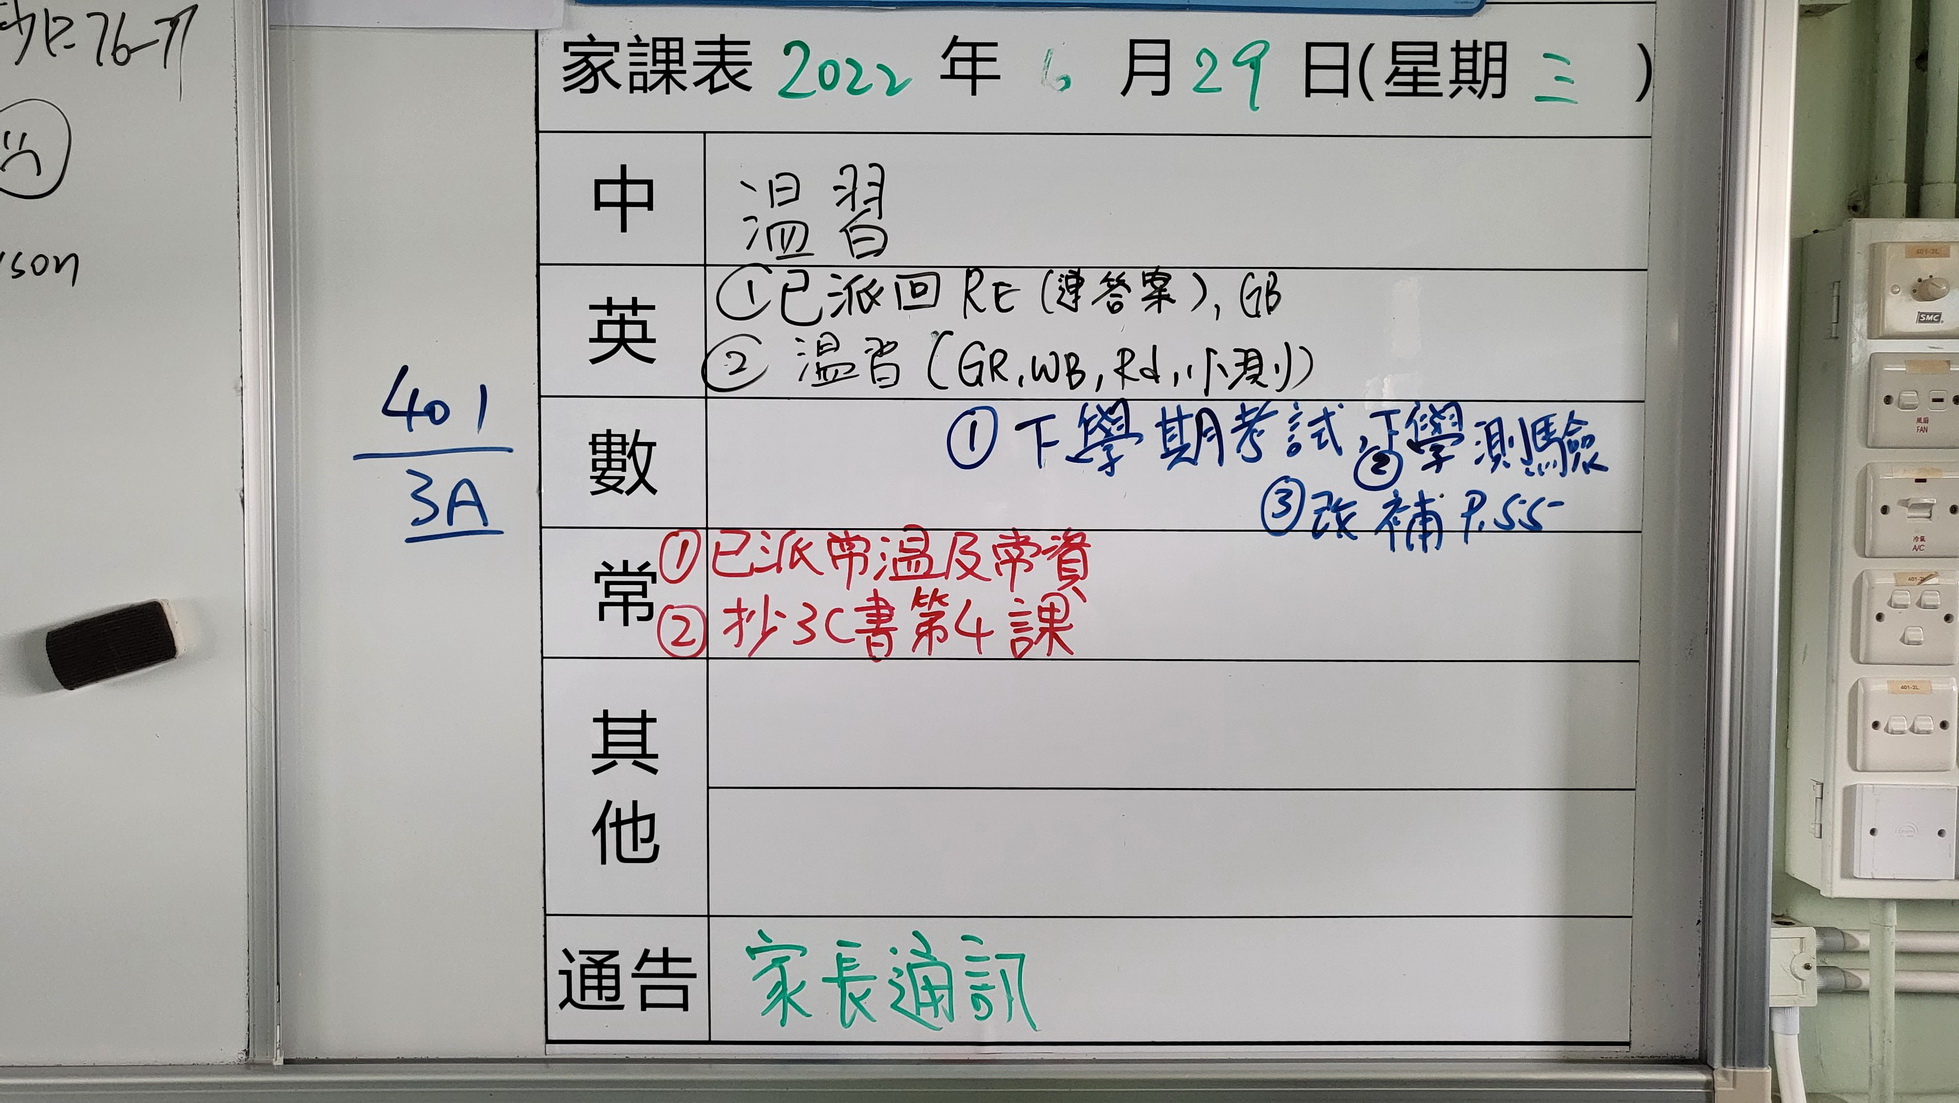 抄P.76-77
son
401
3A
家課表 2022 年 6 月 29 日(星期 三 )
中 溫習
英 ①已派回 RE (連答案), GB
② 溫習 (GR, WB, Rd, 小測)
數 ① 下學期考試, ② 下學測驗
③ 改補 P.55
常 ① 已派常溫及常資
② 抄3C書第4課
其他
通告 家長通訊
401-2L
SMC
風扇
FAN
冷氣
A/C
401-2L
401-2L